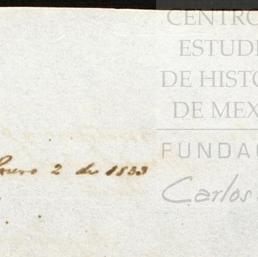 CENTRO
ESTUDI
DE HISTO
DE MEX
FUNDAC
Carlos
Enero 2 de 1833